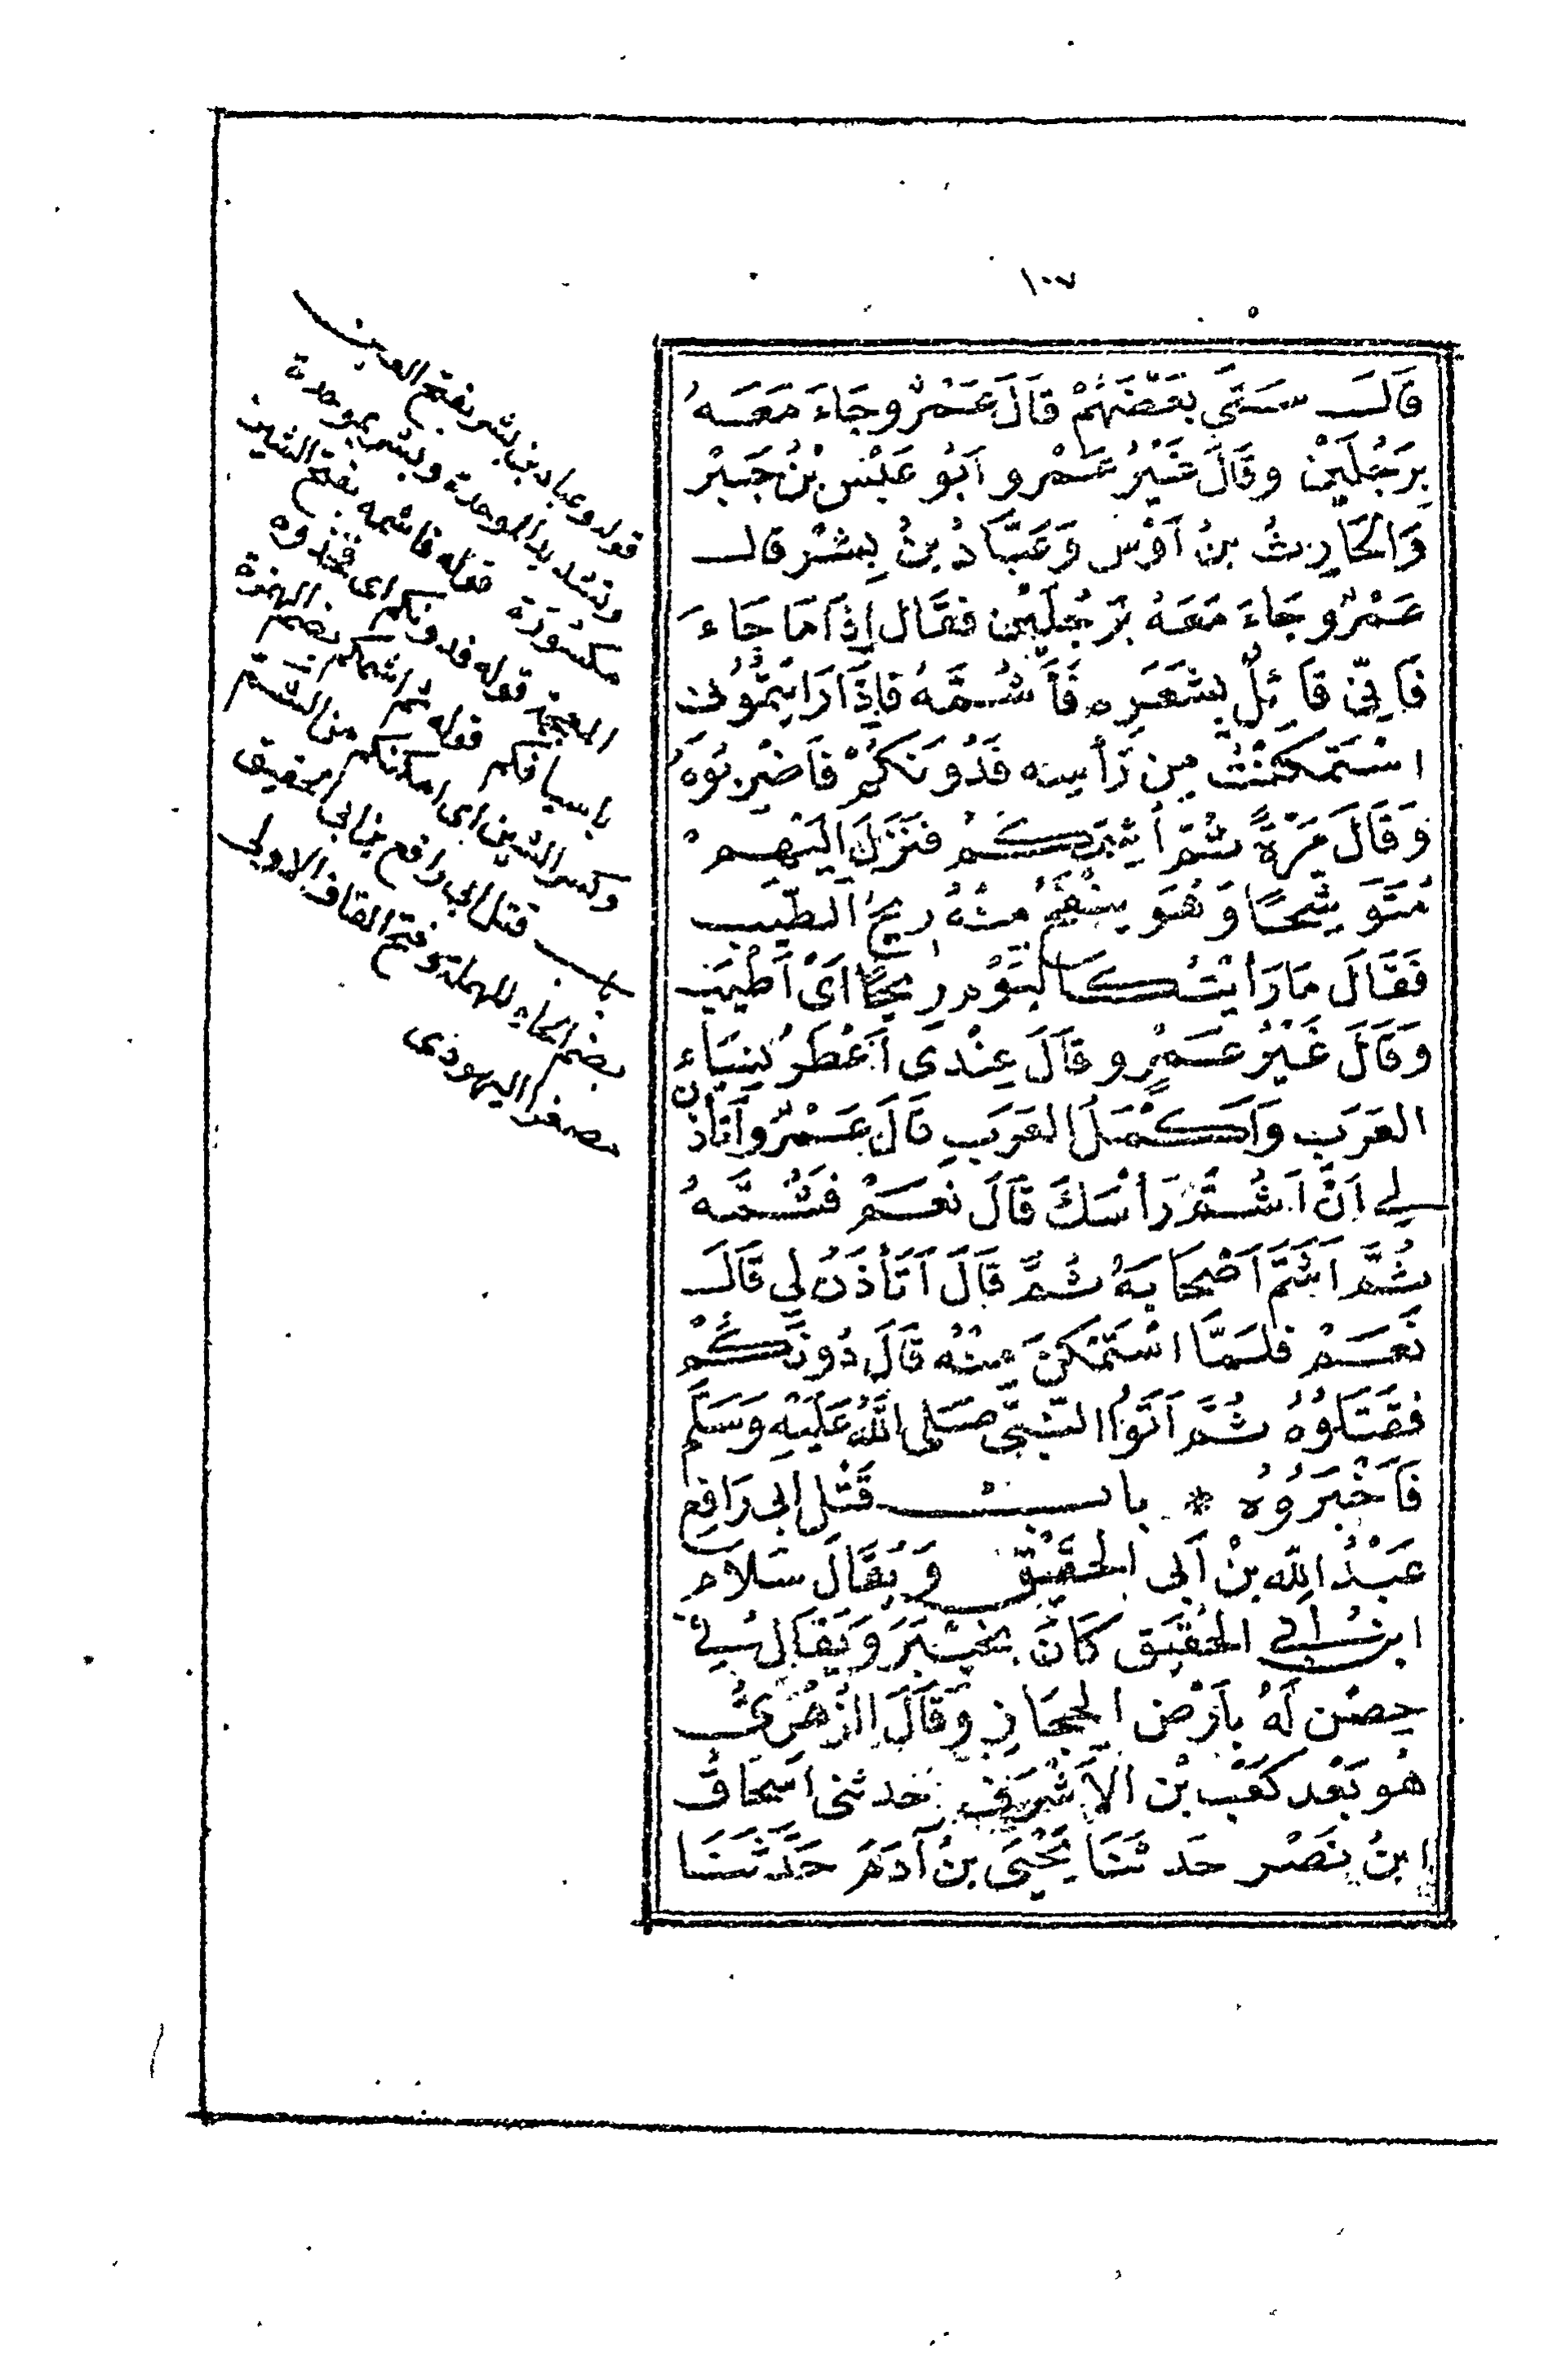 ١٠٧
قَالَ سَمَّى بَعْضَهُمْ قَالَ عَمْرٌو جَاءَ مَعَهُ
بِرَجُلَيْنِ وَقَالَ غَيْرُ عَمْرٍو أَبُو عَبْسِ بْنُ جَبْرٍ
وَالْحَارِثُ بْنُ أَوْسٍ وَعَبَّادُ بْنُ بِشْرٍ قَالَ
عَمْرٌو جَاءَ مَعَهُ بِرَجُلَيْنِ فَقَالَ إِذَا مَا جَاءَ
فَإِنِّي قَائِلٌ بِشَعَرِهِ فَأَشُمُّهُ فَإِذَا رَأَيْتُمُونِي
اسْتَمْكَنْتُ مِنْ رَأْسِهِ فَدُونَكُمْ فَاضْرِبُوهُ
وَقَالَ مَرَّةً ثُمَّ أُشِمُّكُمْ فَنَزَلَ إِلَيْهِمْ
مُتَوَشِّحًا وَهُوَ يَنْفَحُ مِنْهُ رِيحُ الطِّيبِ
فَقَالَ مَا رَأَيْتُ كَالْيَوْمِ رِيحًا أَيْ أَطْيَبَ
وَقَالَ غَيْرُ عَمْرٍو قَالَ عِنْدِي أَعْطَرُ نِسَاءِ
الْعَرَبِ وَأَكْمَلُ الْعَرَبِ قَالَ عَمْرٌو أَتَأْذَنُ
لِي أَنْ أَشُمَّ رَأْسَكَ قَالَ نَعَمْ فَشَمَّهُ
ثُمَّ أَشَمَّ أَصْحَابَهُ ثُمَّ قَالَ أَتَأْذَنُ لِي قَالَ
نَعَمْ فَلَمَّا اسْتَمْكَنَ مِنْهُ قَالَ دُونَكُمْ
فَقَتَلُوهُ ثُمَّ أَتَوُا النَّبِيَّ صَلَّى اللهُ عَلَيْهِ وَسَلَّمَ
فَأَخْبَرُوهُ * باب قَتْلِ أَبِي رَافِعٍ
عَبْدُ اللهِ بْنُ أَبِي الْحُقَيْقِ وَيُقَالُ سَلَامُ
ابْنُ أَبِي الْحُقَيْقِ كَانَ بِخَيْبَرَ وَيُقَالُ فِي
حِصْنٍ لَهُ بِأَرْضِ الْحِجَازِ وَقَالَ الزُّهْرِيُّ
هُوَ بَعْدَ كَعْبِ بْنِ الْأَشْرَفِ حدثني إِسْحَاقُ
ابْنُ نَصْرٍ حَدَّثَنَا يَحْيَى بْنُ آدَمَ حَدَّثَنَا
قوله وعباد بن بشر بفتح العين
وتشديد الموحدة وبشر بموحدة
مكسورة قوله فاشمه بفتح الشين
المعجمة قوله فدونكم اى فخذوه
باسيافكم قوله ثم اشمكم بضم الهمزة
وكسر الشين اى امكنكم من الشم
باب قتل ابي رافع بن ابي الحقيق
بضم الحاء المهملة وفتح القاف الاولى
مصغرا اليهودى